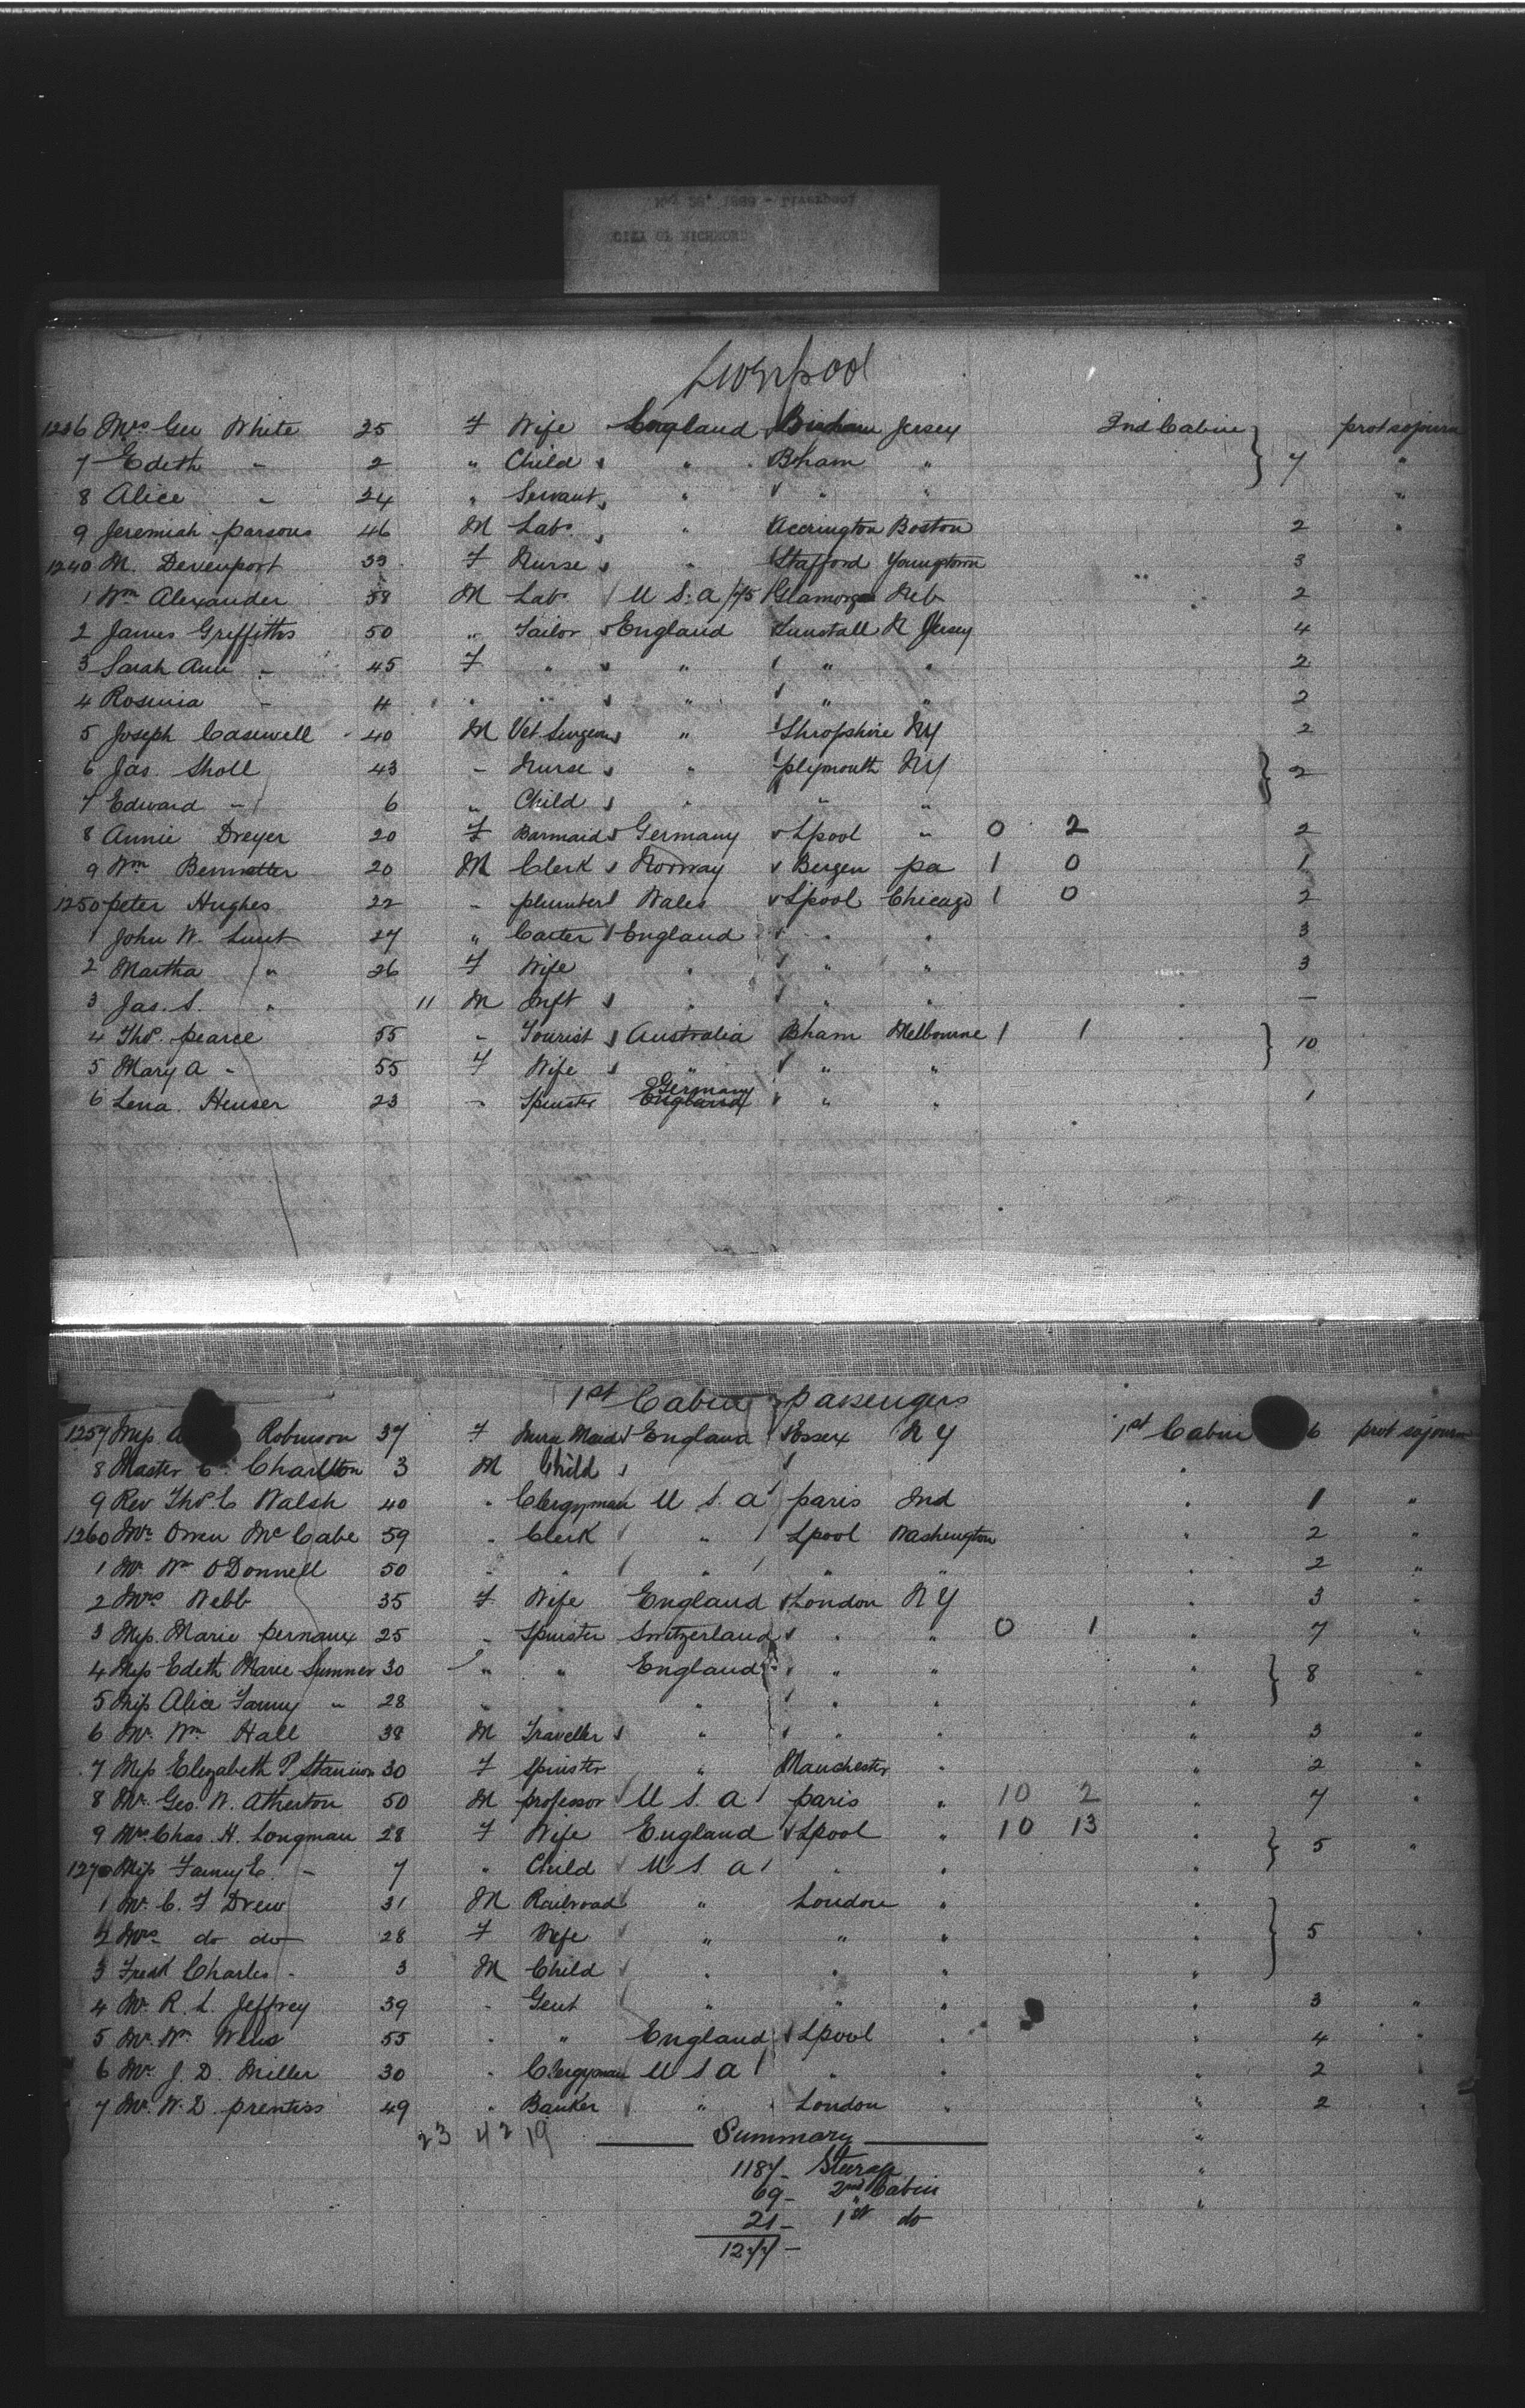 Liverpool
1236 Mrs Geo White 25 F Wife England Jersey 2nd Cabin prot sojourn
7 Edith " 2 " Child " B'ham " 7 "
8 Alice " 24 " Servant " " " "
9 Jeremiah parsons 46 M Labr " Accrington Boston 2 "
1240 M. Devenport 33 F Nurse " Stafford Youngtown 3
1 Wm Alexander 58 M Labr U S. a /75 Glamorgan Neb 2
2 James Griffiths 50 " Tailor England Tunstall N Jersey 4
3 Sarah Ann " 45 F " " " " 2
4 Rosinia " 11 " " " " " 2
5 Joseph Casewell 40 M Vet Surgeon " Shropshire NY 2
6 Jas. Sholl 43 " Nurse " plymouth NY 2
7 Edward " 6 " Child " " "
8 Annie Dreyer 20 F Barmaid Germany Lpool " 0 2 2
9 Wm Bennetter 20 M Clerk Norway Bergen pa 1 0 1
1250 peter Hughes 22 " plumber Wales Lpool Chicago 1 0 2
1 John W. Lunt 27 " Carter England " " 3
2 Martha " 26 F Wife " " " 3
3 Jas. S. " 11 M Inft " " " —
4 Thos. pearce 55 " Tourist Australia B'ham Melbourne 1 1 10
5 Mary A " 55 F Wife " " "
6 Lena Heuser 23 " Spinster Germany England " " 1
1st Cabin passengers
1257 Miss Robinson 37 F Nurse Maid England Essex N Y 1st Cabin 6 prot sojourn
8 Master C. Charlton 3 M Child "
9 Rev Thos. C Walsh 40 " Clergyman U S. a paris Ind " 1 "
1260 Mr Owen McCabe 59 " Clerk " Lpool Washington " 2 "
1 Mr Wm O'Donnell 50 " " " " " " 2 "
2 Mrs Webb 35 F Wife England London N Y " 3 "
3 Miss Marie pernaux 25 " Spinster Switzerland " " 0 1 " 7 "
4 Miss Edith Marie Sumner 30 " " England " " " 8 "
5 Miss Alice Fanny " 28 " " " " " "
6 Mr Wm Hall 38 M Traveller " " " " 3 "
7 Miss Elizabeth P Stanion 30 F Spinster " Manchester " " 2 "
8 Mr Geo. W. Atherton 50 M professor U S. a paris " 10 2 " 7 "
9 Mrs Chas. H. Longman 28 F Wife England Lpool " 10 13 " 5 "
1270 Miss Fanny E. " 7 " Child U S. a " "
1 Mr C. F Drew 31 M Railroad " London " "
2 Mrs do do 28 F Wife " " " " 5 "
3 Fred Charles " 3 M Child " " " "
4 Mr R. L. Jeffrey 39 " Gent " " " " 3 "
5 Mr Wm 55 " " England Lpool " " 4 "
6 Mr J. D. Miller 30 " Clergyman U S a " " " 2
7 Mr W. D. prentiss 49 " Banker " London " " 2 "
23 42 19 Summary "
1187 - Steerage "
69 - 2nd Cabin "
21 - 1st do
1277 -